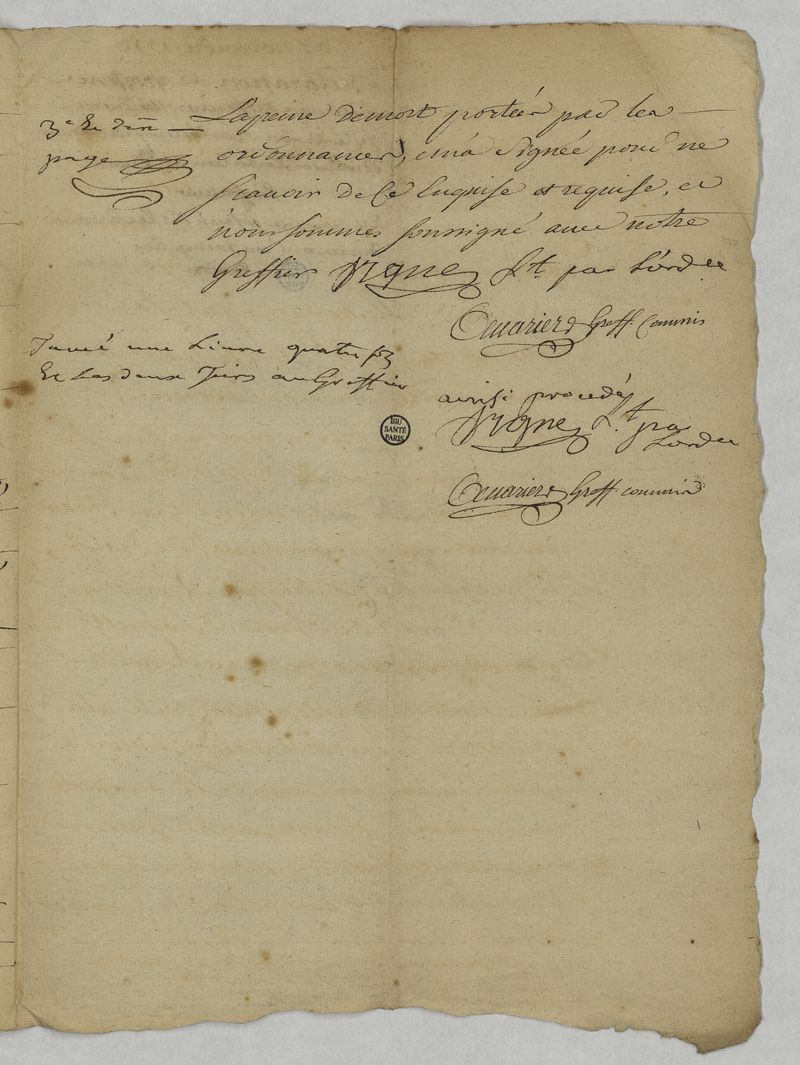 3e Et der
page
La peine de mort portées par les
ordonnances, et n'a Signée pour ne
scavoir de Ce Enquise et requise, et
nous sommes soussigné avec notre
Greffier Vigne Lt. par L'ordre
Greff. Commis
Taxé une Livre quatre
Et Les deux Tiers au Greffier
ainsi procedés
Vigne Lt. par
Lordre
Greff. commis
BIU
SANTÉ
PARIS